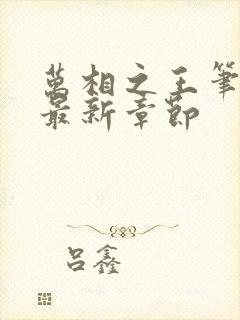 萬相之王筆
最新章節
吕鑫